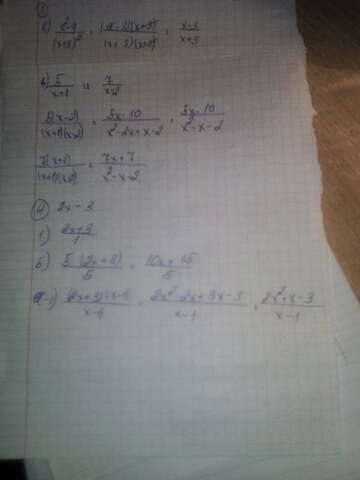 ①
x²-9/(x+3)² = (x-3)(x+3)/(x+3)(x+3) = x-3/x+3
5/x+1 и 7/x-2
5(x-2)/(x+1)(x-2) = 5x-10/x²-2x+x-2 = 5x-10/x²-x-2
7(x+1)/(x+1)(x-2) = 7x+7/x²-x-2
④ 2x+3
1) 2x+3/1
5) 5(2x+3)/5 = 10x+15/5
x-1) (2x+3)(x-1)/x-1 = 2x²-2x+3x-3/x-1 = 2x²+x-3/x-1